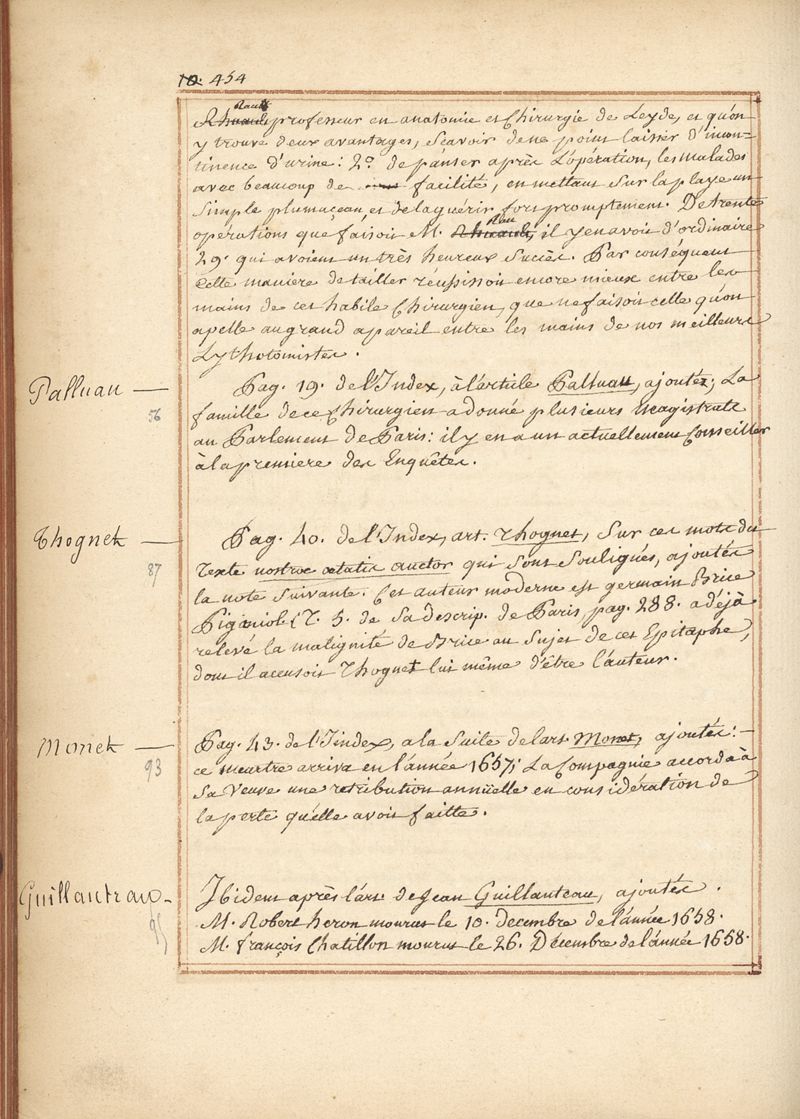 454
Rau
professeur en anatomie et Chirurgie de Leyde, et qu'on
y trouve deux avantages, Sçavoir de ne point laisser d'incon=
tinence d'urine: 2.º de panser après L'opération, les malades
avec beaucoup de facilité, en mettant Sur la playe un
Simple plumaçeau, et de la guérir fort promptement. De trente
opérations que faisoit M. Rau, il y en avoit d'ordinaire
29. qui avoient un très heureux Succès. Par conséquent
Cette maniere de tailler réussissoit encore mieux entre les
mains de cet habile Chirurgien, que ne faisoit celle qu'on
apelle au grand apareil entre les mains de nos meilleurs
Lythotomistes.
Palluau —
56
Pag. 19. de l'Index, à l'article Palluau, ajoutéz; La
famille de ce Chirurgien a donné plusieurs Magistrats
au Parlement de Paris: il y en a un actuellement Conseiller
à la premiere des Enquêtes.
Thognet —
87
Pag. 40. de l'Index, art. Thognet, Sur ces mots du
Texte nostrae aetatis auctor qui Sont Soulignés, ajoutés
la note Suivante. Cet auteur moderne est germain Brice
Piganiol (T. 5. de Sa descrip. de Paris pag. 288. a déjà
relevé la malignité de Brice au Sujet de cet Epitaphe,
dont il accusoit Thognet lui même d'être l'auteur.
Monet —
93
Pag. 43. de l'Index, a la Suite de l'art. Monet, ajoutés: —
ce meurtre arriva en l'année 1657; La Compagnie accorda à
Sa Veuve une rétribution annuelle en considération de
la perte qu'elle avoit faitte.
Guillauteau -
95
Ibidem après l'art. de Jean Guillauteau, ajoutés.
M. Robert heron mourut le 10. decembre de l'année 1658.
M. françois Chatillon mourut le 26. Décembre de l'année 1658.